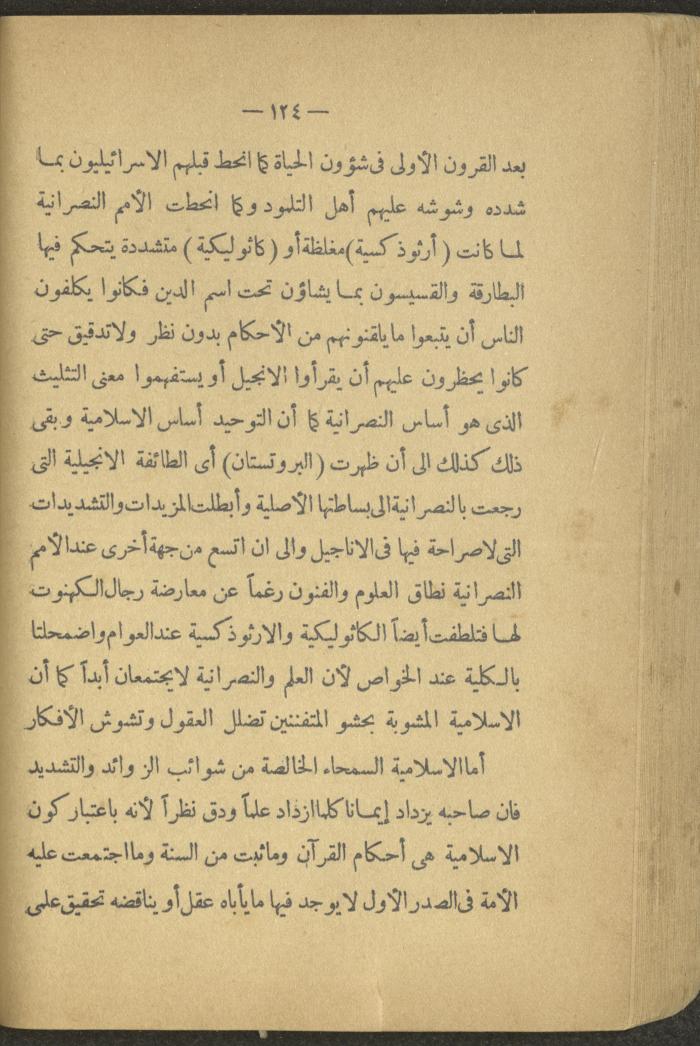 — ١٢٤ —
بعد القرون الأولى فى شؤون الحياة كما انحط قبلهم الاسرائيليون بما
شدده وشوشه عليهم أهل التلمود وكما انحطت الأمم النصرانية
لما كانت (أرثوذكسية) مغلظة أو (كاثوليكية) متشددة يتحكم فيها
البطارقة والقسيسون بما يشاؤن تحت اسم الدين فكانوا يكلفون
الناس أن يتبعوا ما يلقنونهم من الأحكام بدون نظر ولا تدقيق حتى
كانوا يحظرون عليهم أن يقرأوا الانجيل أو يستفهموا معنى التثليث
الذى هو أساس النصرانية كما أن التوحيد أساس الاسلامية وبقى
ذلك كذلك الى أن ظهرت (البروتستان) أى الطائفة الانجيلية التى
رجعت بالنصرانية الى بساطتها الأصلية وأبطلت المزيدات والتشديدات
التى لا صراحة فيها فى الاناجيل والى ان اتسع من جهة أخرى عند الأمم
النصرانية نطاق العلوم والفنون رغماً عن معارضة رجال الكهنوت
لها فتلطفت أيضاً الكاثوليكية والارثوذكسية عند العوام واضمحلتا
بالكلية عند الخواص لأن العلم والنصرانية لا يجتمعان أبداً كما أن
الاسلامية المشوبة بحشو المتفننين تضلل العقول وتشوش الأفكار
أما الاسلامية السمحاء الخالصة من شوائب الزوائد والتشديد
فان صاحبه يزداد إيمانا كلما ازداد علماً ودق نظراً لأنه باعتبار كون
الاسلامية هى أحكام القرآن وما ثبت من السنة وما اجتمعت عليه
الأمة فى الصدر الأول لا يوجد فيها ما يأباه عقل أو يناقضه تحقيق علمى